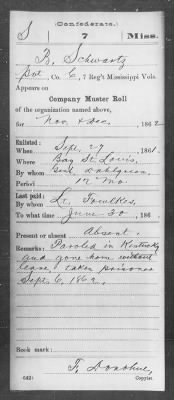 (Confederate.)
S 7 Miss.
R. Schwartz
Pvt, Co. C, 7 Reg't Mississippi Vols.
Appears on
Company Muster Roll
of the organization named above,
for Nov & Dec, 1862
Enlisted:
When Sept. 27, 1861.
Where Bay St. Louis,
By whom Genl. Dahlgren,
Period 12 Mo.
Last paid:
By whom Lt. Fowlkes,
To what time June 30, 186
Present or absent Absent.
Remarks: Paroled in Kentucky
and gone home without
leave, taken prisoner
Sept 6, 1862.
Book mark:
(642) F. Donohue,
Copyist.